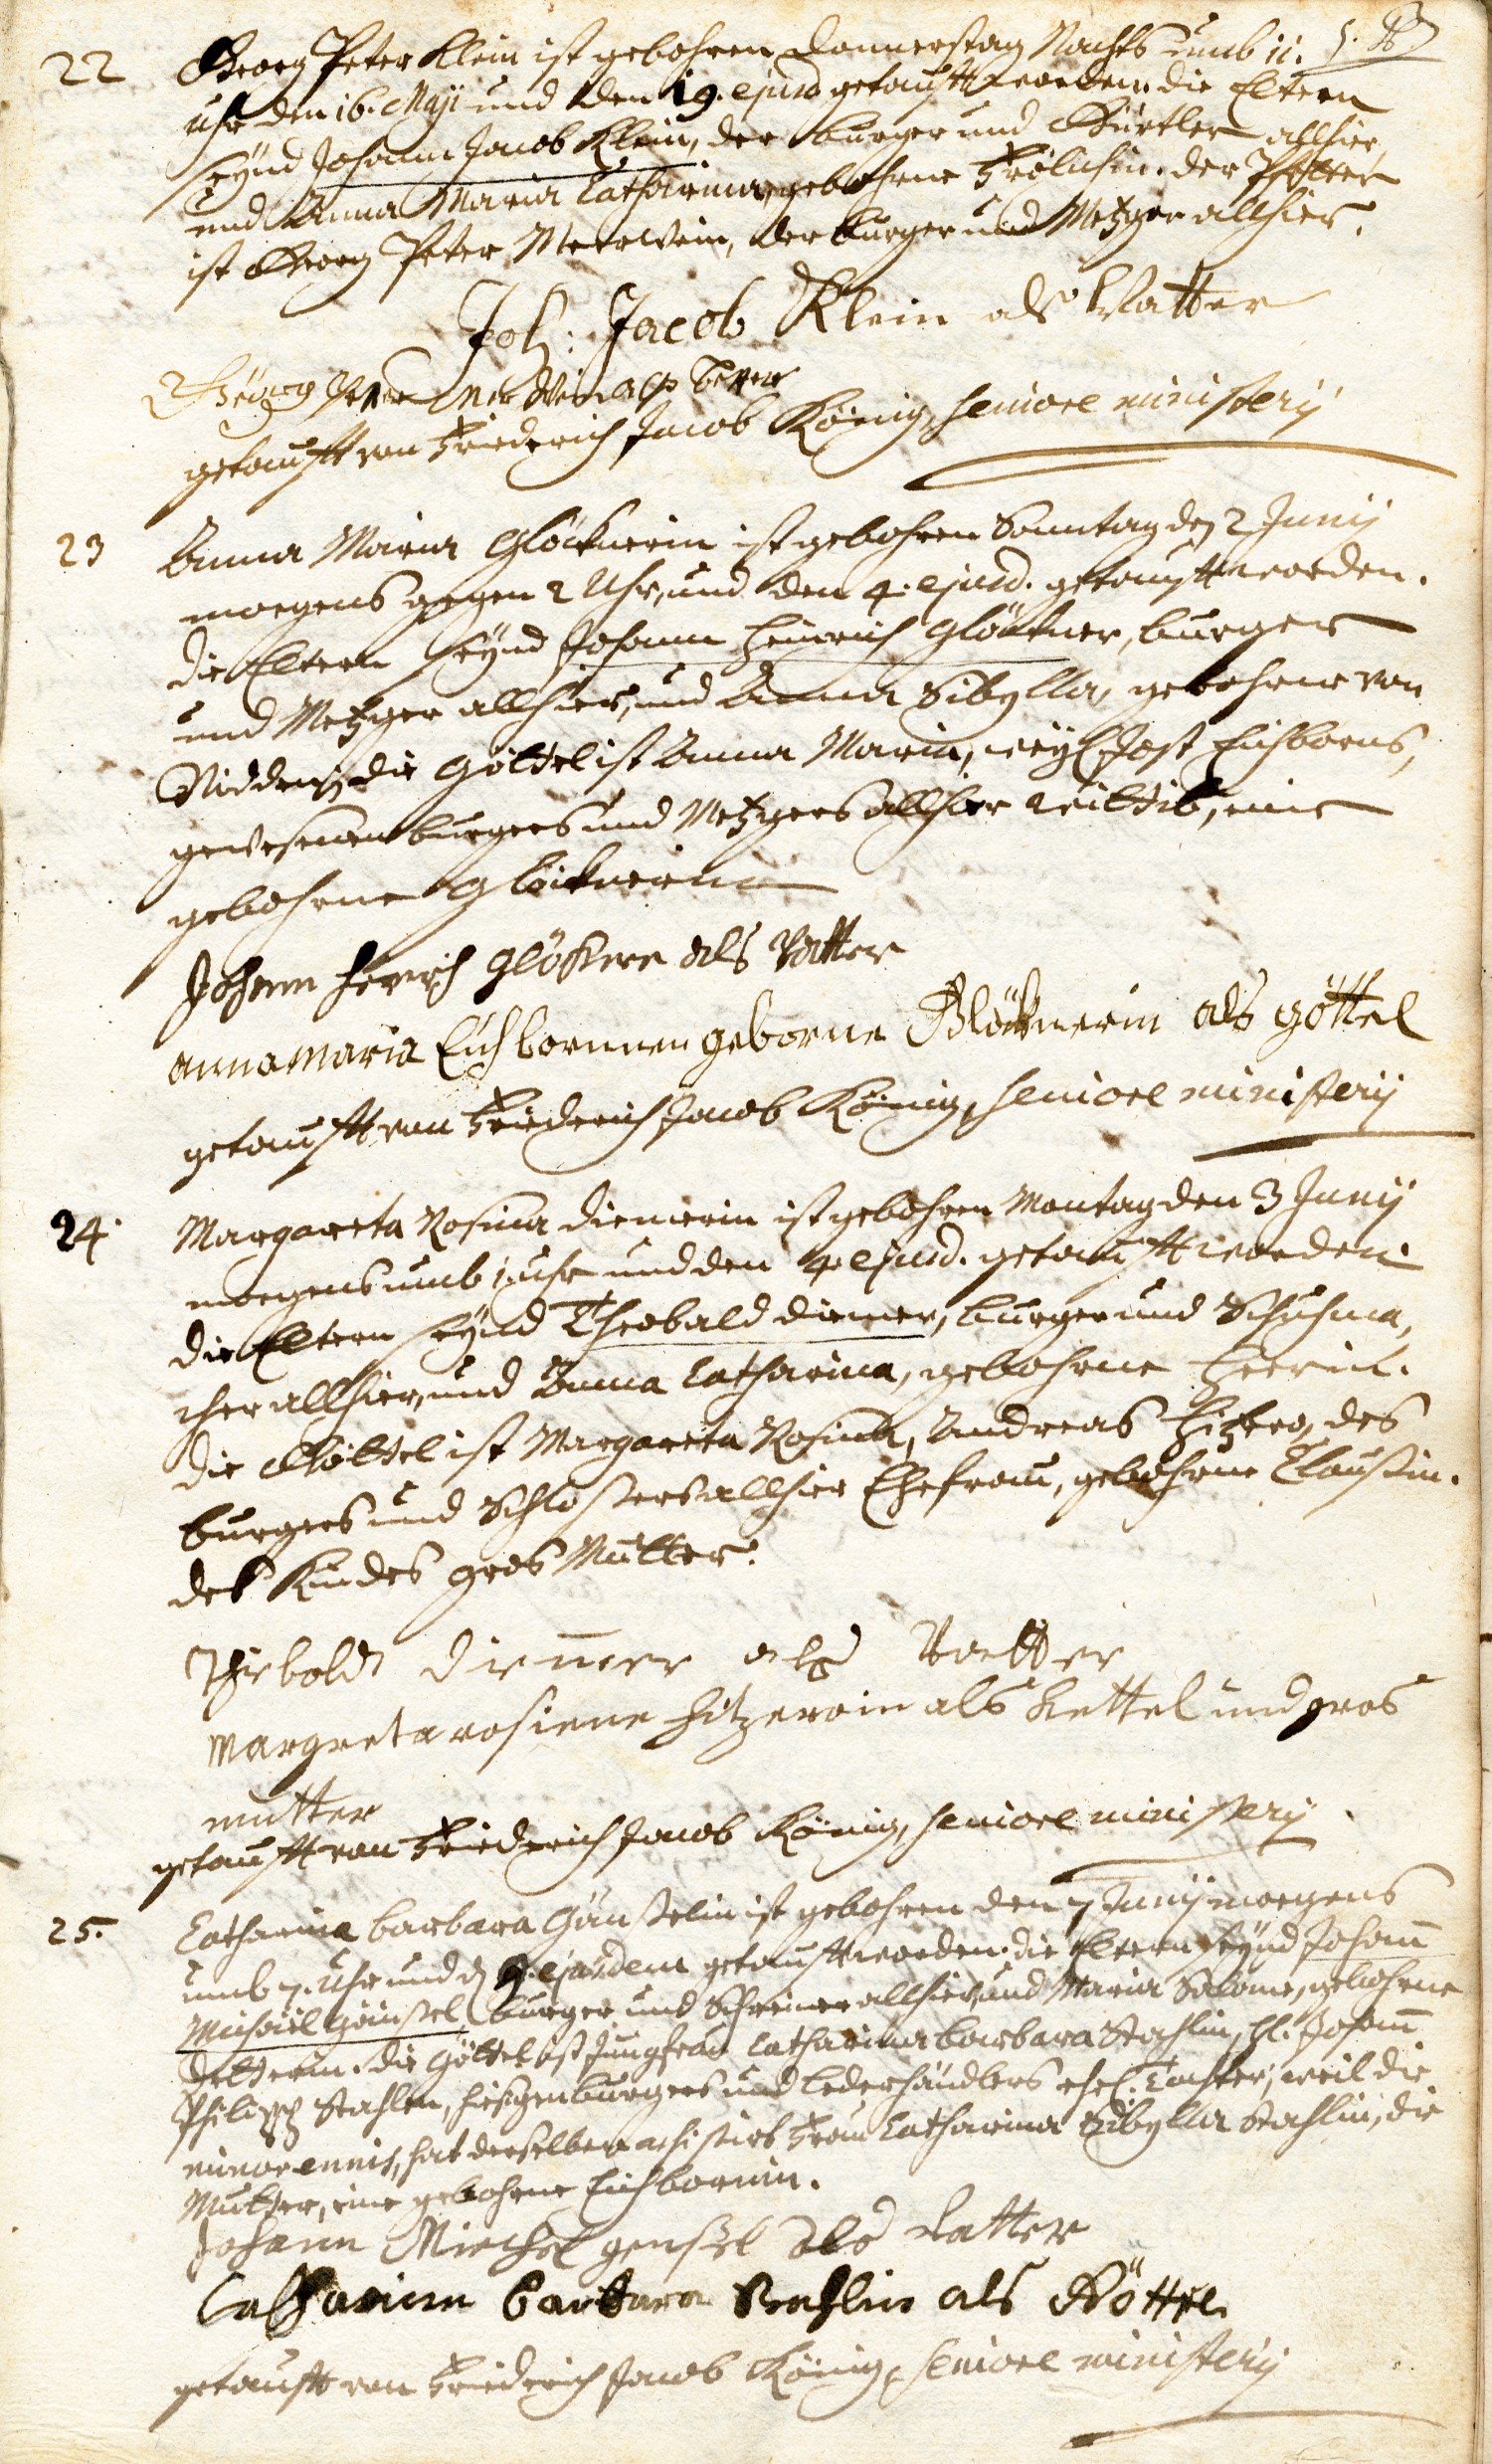 22 Georg Peter Klein ist gebohren Donnerstag Nachts umb 11.
uhr den 16. Maji und den 19. ejusd getaufft worden. die Eltern
seynd Johann Jacob Klein, der burger und Gürtler allhier,
und Anna Maria Catharina, gebohrne Frölichin. der Pfetter
ist Georg Peter Meerwein, der burger und Metzger allhier.
Joh: Jacob Klein als Vatter
Geörg Peter Merwein alß
getaufft von Friederich Jacob König, seniore ministerij
23 Anna Maria Glöcknerin ist gebohren Sonntag den 2 Junij
morgens gegen 2 Uhr, und den 4. ejusd. getaufft worden.
die Eltern seynd Johann Heinrich Glöckner, burger
und Metzger allhier, und Anna Sibylla, gebohrne von
Nidden, die Göttel ist Anna Maria, weyl. Jost Eichborns,
gewesenen burgers und Metzgers allhier wittib, eine
gebohrne Glöcknerin
Johann Henrich Glöckner als Vatter
anna maria Eichbornnen geborne Glöcknerin als göttel
getaufft von Friederich Jacob König, seniore ministerij
24. Margareta Rosina Diemerin ist gebohren Montag den 3 Junij
morgens umb 1. uhr und den 4 ejusd. getaufft worden.
die Eltern seynd Theobald Diemer, burger und Schuhma,
cher allhier, und Anna Catharina, gebohrne Heerin.
die Göttel ist Margareta Rosina, Andreas Hitzers, des
burgers und Schlossers allhier Ehefrau, gebohrne Claussin.
des Kindes gros Mutter.
Thiebold Diemer alß Vatter
Margreta rosiena hitzerin als Kettel und gros
mutter
getaufft von Friederich Jacob König, seniore ministerij
25. Catharina barbara Gänsselin ist gebohren den 7 Junij morgens
umb 7. Uhr und d 9. ejusdem getaufft worden. die Eltern seynd Johann
Michael Gänssel, burger und Schreiner allhier, und Maria Salome, gebohrne
Detterin. die Göttel ist Jungfrau Catharina barbara Stahlin, H. Johann
Philipp Stahlen, hiesigen burgers und Lederhändlers ehel. Tochter, weil die
minorennis, hat derselben assistirt Frau Catharina Sibylla Stahlin, die
Mutter, eine gebohrne Eichbornin.
Johann Miechel genßel als Vatter
Catharina barbara Stahlin als Göttel
getaufft von Friederich Jacob König, seniore ministerij